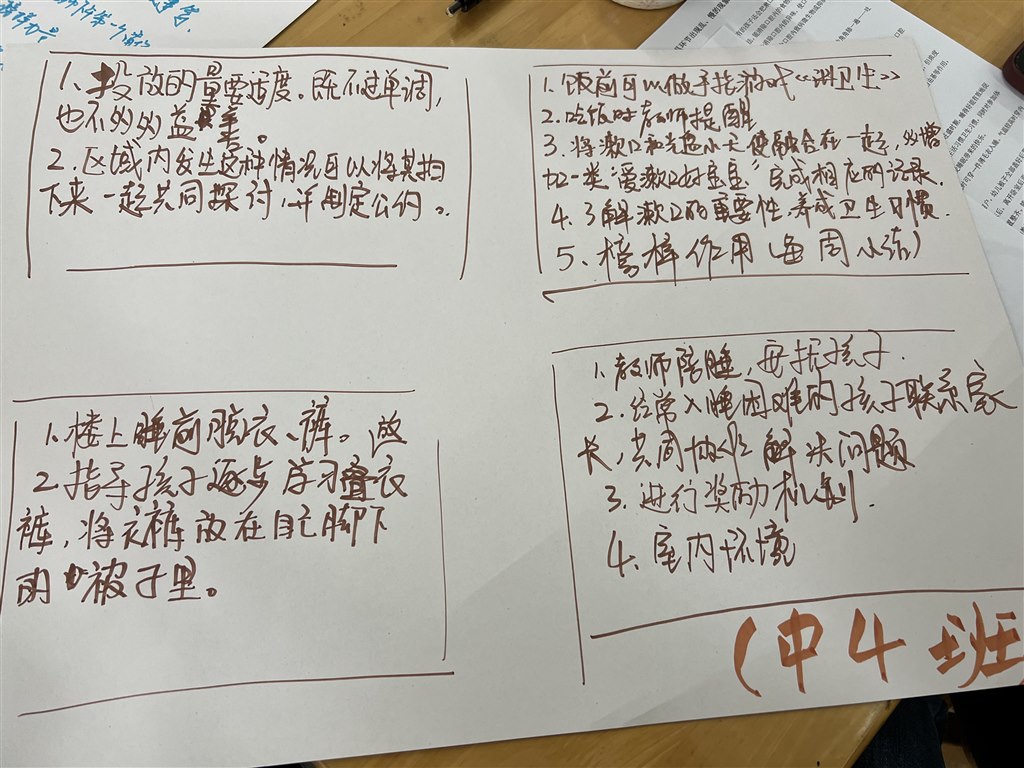 1、投放的量要适度。既不过单调,
也不多多益善。
2.区域内发生这种情况可以将其拍
下来一起共同探讨,并制定公约。
1.饭前可以做手指游戏《讲卫生》
2.吃饭时教师提醒
3.将漱口和光盘小天使融合在一起,多增
加一类"爱漱口好宝宝"完成相应的记录.
4.了解漱口的重要性,养成卫生习惯.
5、榜样作用(每周小结)
1、楼上睡前脱衣、裤。放
2.指导孩子逐步学习叠衣
裤,将衣裤放在自己脚下
的被子里。
1.教师陪睡,安抚孩子.
2.经常入睡困难的孩子联系家
长,共同协作解决问题
3.进行奖励机制.
4.室内环境
(中4班)